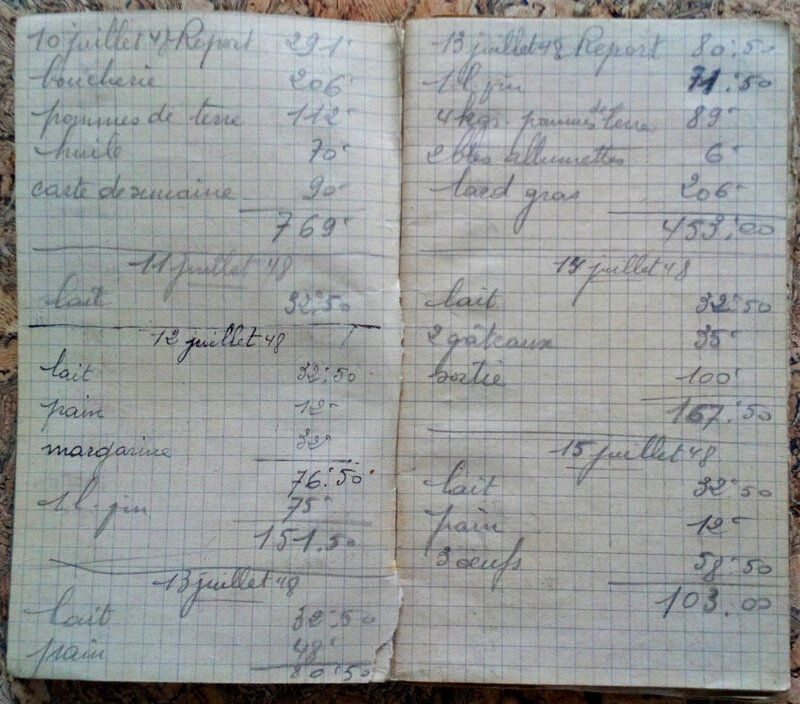 10 juillet 48 Report 291-
boucherie 206-
pommes de terre 112-
huile 70-
carte de semaine 90-
769-
11 juillet 48
lait 32.50
12 juillet 48
lait 32.50
pain 12-
margarine 32-
76.50
1 l. 75-
151.50
13 juillet 48
lait 32.50
pain 48-
80.50
13 juillet 48 Report 80.50
1 l. 71.50
4 kgs. pommes de terre 89-
2 btes allumettes 6-
lard gras 206-
453.00
14 juillet 48
lait 32.50
2 gâteaux 35-
sortie 100-
167.50
15 juillet 48
lait 32.50
pain 12-
3 œufs 58.50
103.00